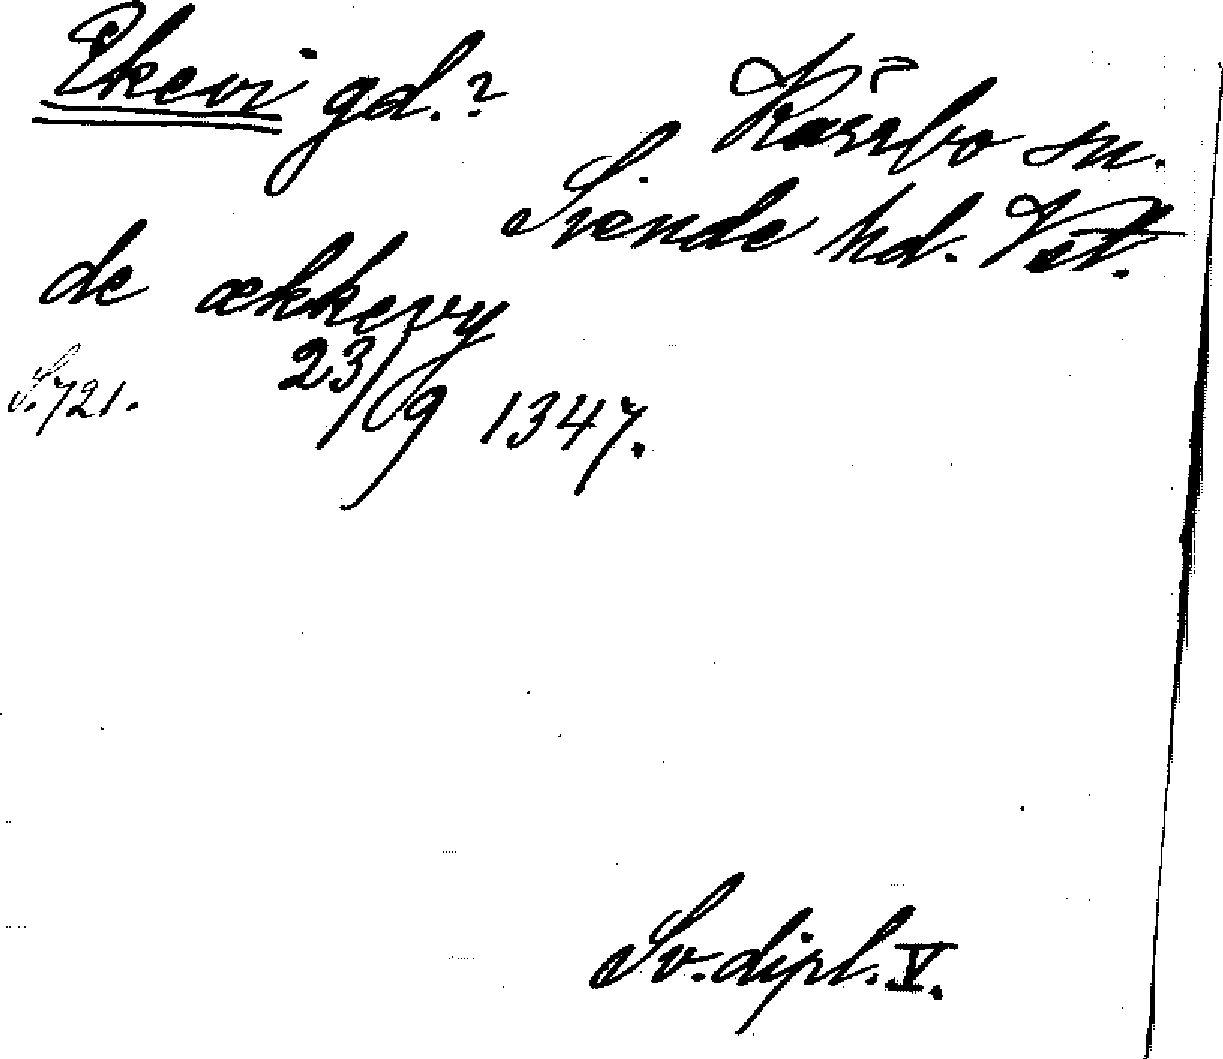 Ekevi gd.?
Kärrbo sn.
Siende hd. Vstm.
de ækkevy
23/9 1347.
S. 721.
Sv. dipl. V.